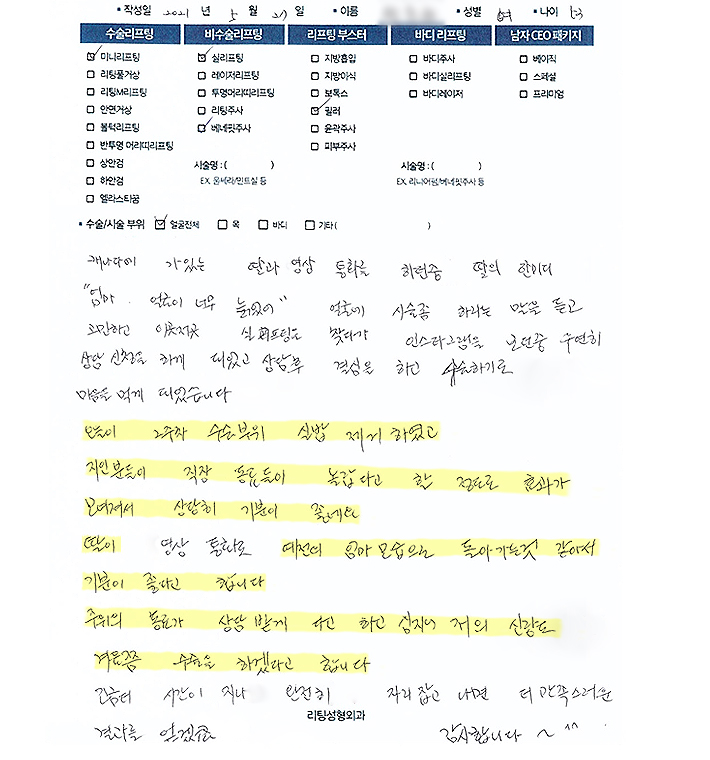 • 작성일 2021 년 5 월 27 일 • 이름 • 성별 여 • 나이 53
수술리프팅 비수술리프팅 리프팅 부스터 바디 리프팅 남자 CEO 패키지
☑ 미니리프팅 ☑ 실리프팅 ☐ 지방흡입 ☐ 바디주사 ☐ 베이직
☐ 리팅풀거상 ☐ 레이저리프팅 ☐ 지방이식 ☐ 바디실리프팅 ☐ 스페셜
☐ 리팅M리프팅 ☐ 투명머리띠리프팅 ☐ 보톡스 ☐ 바디레이저 ☐ 프리미엄
☐ 안면거상 ☐ 리팅주사 ☑ 필러
☐ 볼턱리프팅 ☑ 베네핏주사 ☐ 윤곽주사
☐ 반투명 머리띠리프팅 ☐ 피부주사
☐ 상안검 시술명 : ( ) 시술명 : ( )
☐ 하안검 EX. 울쎄라/민트실 등 EX. 리니어펌/베네핏주사 등
☐ 엘라스티꿈
• 수술/시술 부위 ☑ 얼굴전체 ☐ 목 ☐ 바디 ☐ 기타 ( )
캐나다에 가있는 딸과 영상 통화를 하던중 딸의 한마디
"엄마. 얼굴이 너무 늙었어" 얼굴에 시술좀 하라는 말을 듣고
고민하고 이곳저곳 실리프팅을 찾다가 인스타그램을 보던중 우연히
상담 신청을 하게 되었고 상담후 결심을 하고 수술하기로
마음을 먹게 되었습니다
오늘이 2주차 수술부위 실밥 제거 하였고
지인분들이 직장 동료들이 놀랍다고 할 정도로 효과가
보여져서 상당히 기분이 좋네요
딸이 영상 통화로 예전의 엄마 모습으로 돌아가는것 같아서
기분이 좋다고 합니다
주위의 동료가 상담 받게 다고 하고 심지어 저의 신랑도
겨름쯤 수술을 하겠다고 합니다
조금더 시간이 지나 완전히 자리 잡고 나면 더 만족스러운
결과를 얻겠죠 감사합니다 ~ ^^
리팅성형외과